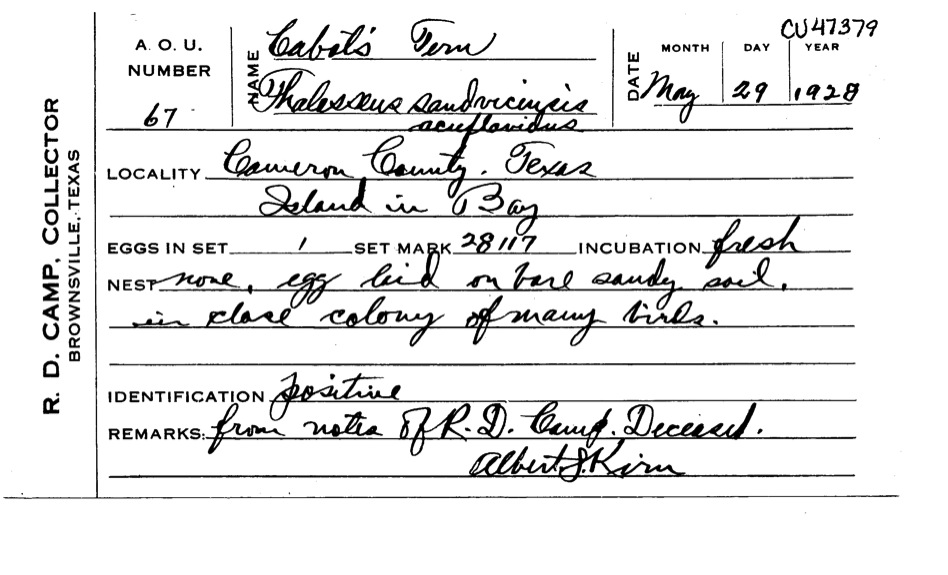 CU47379
R. D. CAMP, COLLECTOR
BROWNSVILLE, TEXAS
A. O. U. NUMBER 67
NAME Cabot's Tern
Thalasseus sandvicinsis
acuflavidus
DATE MONTH May DAY 29 YEAR 1928
LOCALITY Cameron County. Texas
Island in Bay
EGGS IN SET 1 SET MARK 28117 INCUBATION fresh
NEST none, egg laid on bare sandy soil,
in close colony of many birds.
IDENTIFICATION positive
REMARKS: from notes of R. D. Camp. Deceased.
Albert J. Kirn